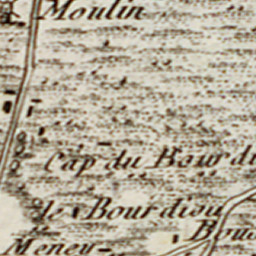 Moulin
Cap du Bourdi
le Bourdiou
Bou
Meney-